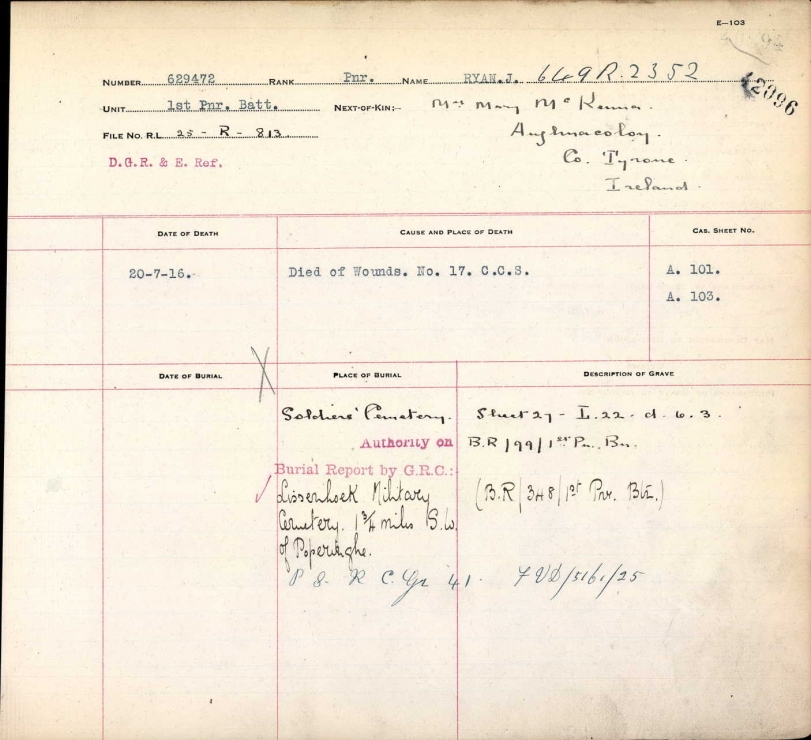 E—103
NUMBER 629472 RANK Pnr. NAME RYAN.J. 649R.2352
42096
UNIT 1st Pnr. Batt. NEXT-OF-KIN:- Mrs Mary McKenna.
FILE NO. R.L. 25 - R - 813 Aughnacoloy.
D.G.R. & E. Ref. Co. Tyrone.
Ireland.
DATE OF DEATH CAUSE AND PLACE OF DEATH CAS. SHEET NO.
20-7-16. Died of Wounds. No. 17. C.C.S. A. 101.
A. 103.
DATE OF BURIAL PLACE OF BURIAL DESCRIPTION OF GRAVE
Soldiers' Cemetery. Sheet 27 - L. 22. d. 6. 3.
Authority on B.R/99/1st Pnr. Bn.
Burial Report by G.R.C.:
Lissenhoek Military (B.R/348/1st Pnr. Btn.)
Cemetery. 1¾ miles S.W.
of Poperinghe.
P 8. R C. Gr 41.